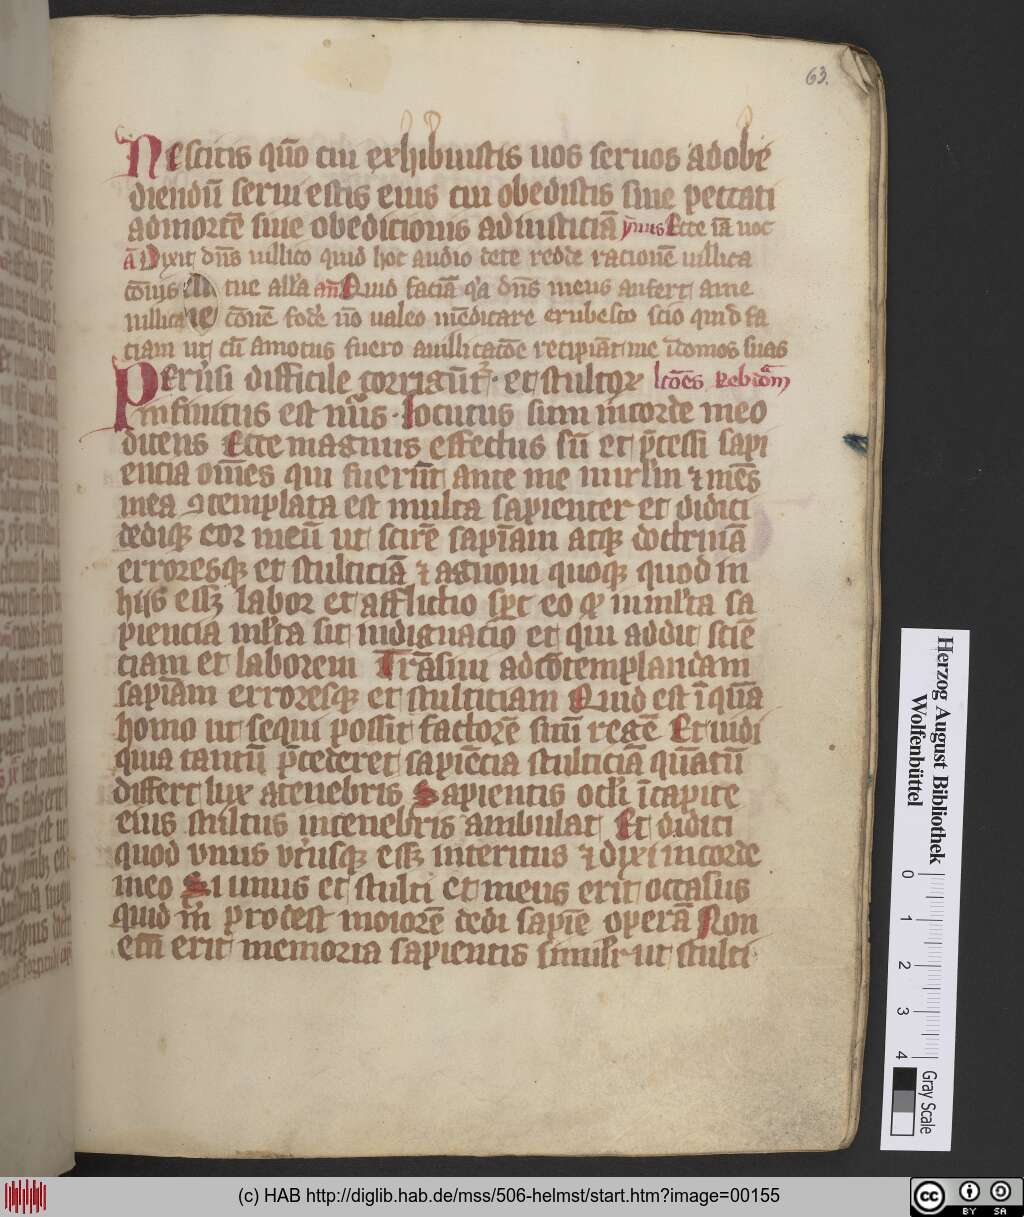 63.
Nescitis qūo cui exhibuistis uos seruos adobe
diendū serui estis eius cui obedistis siue peccati
admortē siue obedicionis adiusticiā ẏmis Ecce iā noc
ā Dixit dn̄s uillico quid hoc audio dete redde racionē uillica
cōnis tue all'a an̄ Quid faciā q'a dn̄s meus aufert ame
uillicacōnē fode nō ualeo mēdicare erubesco scio quid fa
ciam ut cū amotus fuero auillicacōe recipiāt me ī domos suas
Peru'si difficile corrigūt' et stultoꝝ lcōēs sebdōm
infinitus est nūs· Locutus sum incorde meo
dicens Ecce magnus effectus sū et p̄cessi sapi
encia om̄es qui fuerūt ante me in ir'lm ⁊ mēs
mea ꝯtemplata est multa sapienter et didici
dediqꝫ cor meū ut scirē sapīam atqꝫ doctrinā
erroresqꝫ et stulticiā ⁊ agnoui quoqꝫ quod in
hijs essꝫ labor et afflictio sp̄c eo qꝫ in ml'ta sa
piencia ml'ta sit indignacio et qui addit sciē
ciam et laborem Trāsiui adcōtemplandam
sapīam erroresqꝫ et stulticiam Quid est īquā
homo ut sequi possit factorē suū regē Et uidi
quia tantū p̄cederet sapiēcia stulticiā quātū
differt lux atenebris Sapientis ocl'i īcapite
eius stultus intenebris ambulat Et didici
quod vnus vt'usqꝫ essꝫ interitus ⁊ dixi incorde
meo Si unus et stulti et meus erit occasus
quid m̄ prodest moiorē dedi sapīe operā Non
em̄ erit memoria sapientis simil'r ut stulti·
Herzog August Bibliothek
Wolfenbüttel
0 1 2 3 4
Gray Scale
(c) HAB http://diglib.hab.de/mss/506-helmst/start.htm?image=00155
cc BY SA